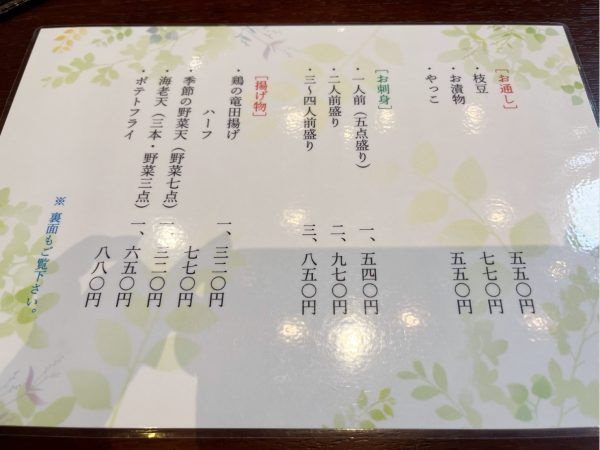 ［お通し］
・枝豆 五五〇円
・お漬物 七七〇円
・やっこ 五五〇円
［お刺身］
・一人前（五点盛り） 一、五四〇円
・二人前盛り 二、九七〇円
・三～四人前盛り 三、八五〇円
［揚げ物］
・鶏の竜田揚げ 一、三二〇円
ハーフ 七七〇円
・季節の野菜天（野菜七点） 一、三二〇円
・海老天（三本・野菜三点） 一、六五〇円
・ポテトフライ 八八〇円
※ 裏面もご覧下さい。